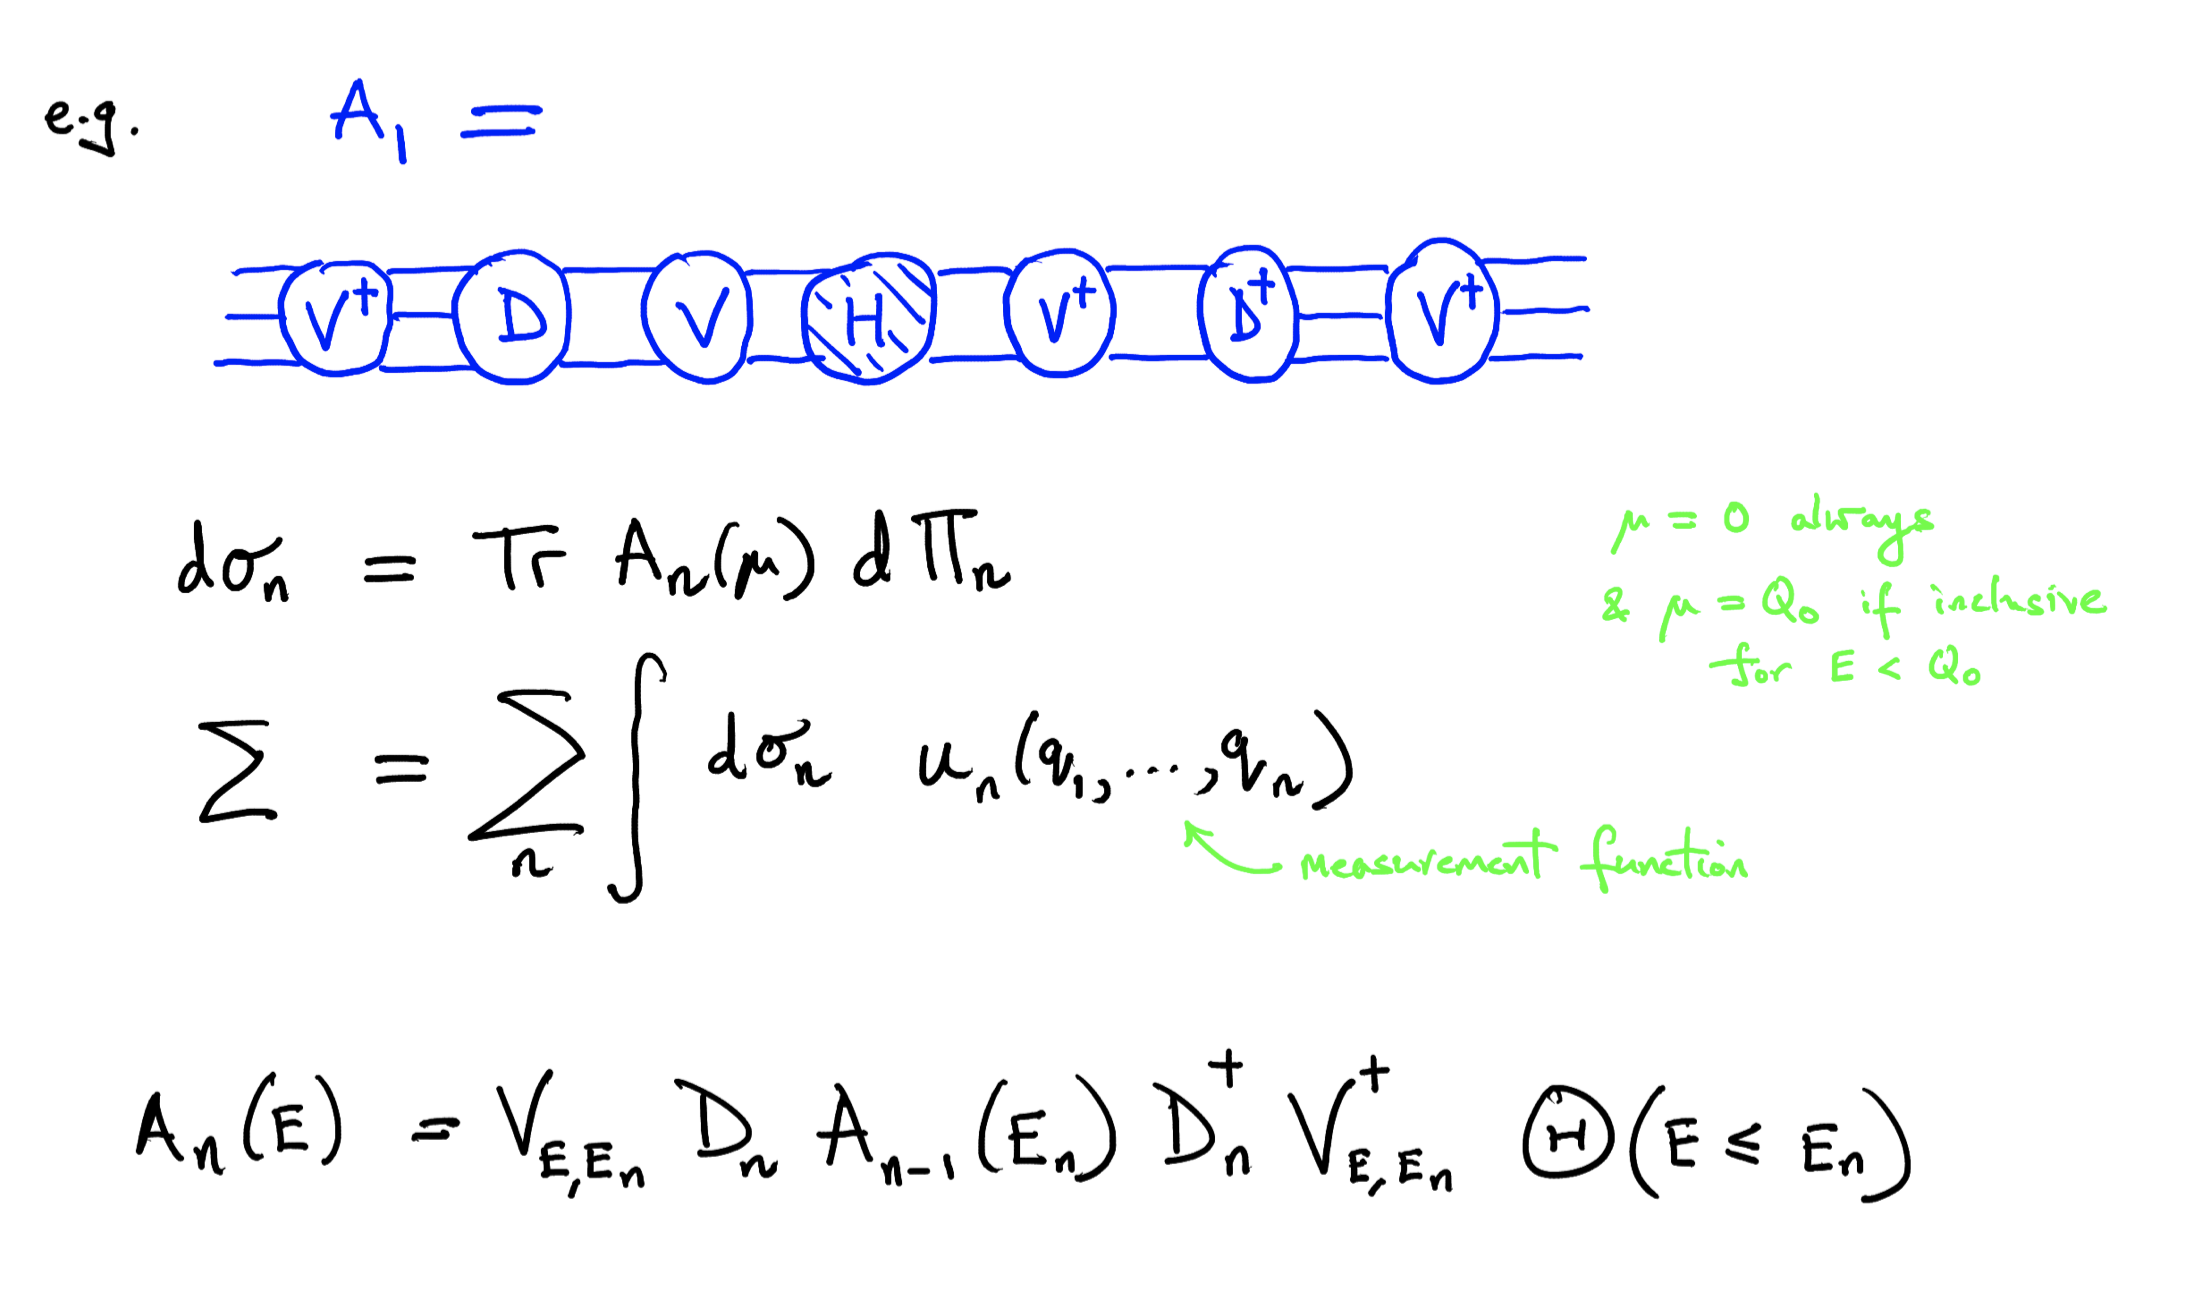 e.g. A₁ =
V† D V H V† D† V†
dσₙ = Tr Aₙ(μ) dΠₙ
μ = 0 always
& μ = Q₀ if inclusive
for E < Q₀
Σ = Σₙ ∫ dσₙ uₙ(q₁,...,qₙ)
measurement function
Aₙ(E) = V_{E,Eₙ} Dₙ Aₙ₋₁(Eₙ) Dₙ† V†_{E,Eₙ} Θ(E ≤ Eₙ)